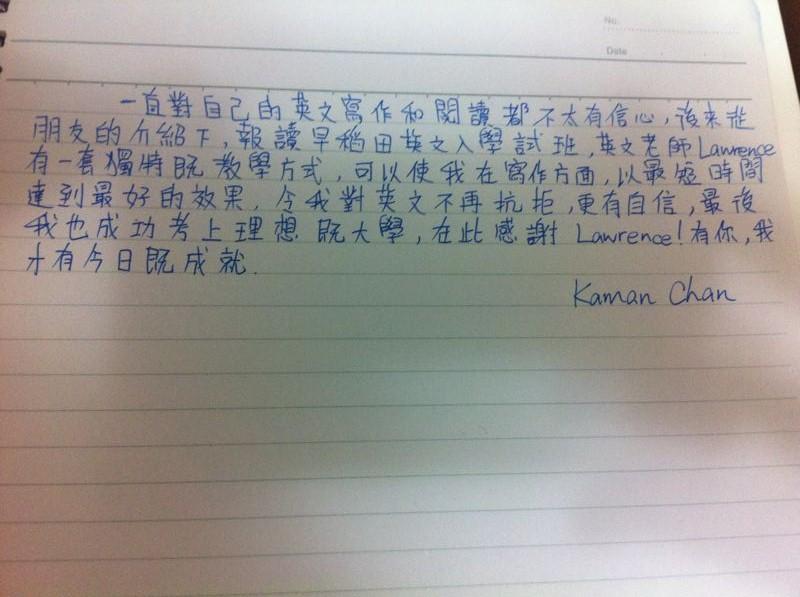 No.
Date
一直對自己的英文寫作和閱讀都不太有信心，後來從
朋友的介紹下，報讀早稻田英文入學試班，英文老師Lawrence
有一套獨特既教學方式，可以使我在寫作方面，以最短時間
達到最好的效果．令我對英文不再抗拒，更有自信，最後
我也成功考上理想既大學，在此感謝 Lawrence！有你，我
才有今日既成就．
Kaman Chan